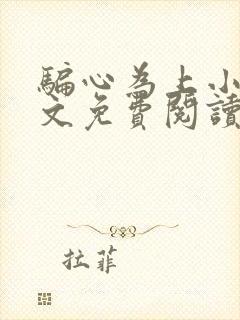 騙心為上小
文免費閱讀
拉菲